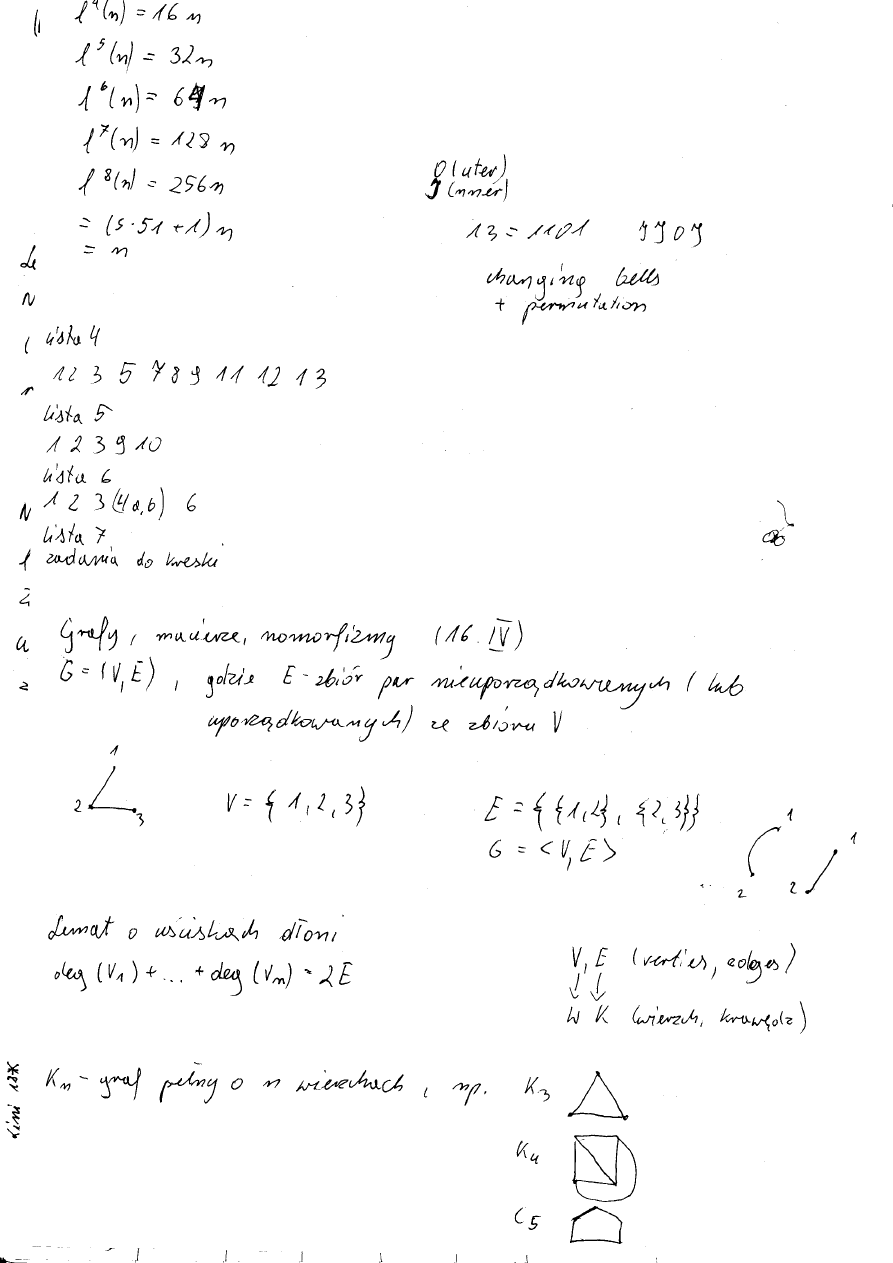 f⁴(n) = 16n
f⁵(n) = 32n
f⁶(n) = 64n
f⁷(n) = 128n
f⁸(n) = 256n
= (5·51+1)n
= n
O(uter)
I(nner)
13 = 1101 IIOI
changing bells
+ permutation
Lista 4
1 2 3 5 7 8 9 11 12 13
Lista 5
1 2 3 9 10
Lista 6
1 2 3 (4a,b) 6
Lista 7
zadania do kreski
Grafy, macierze, nomorfizmy (16. IV)
G = (V, E), gdzie E - zbiór par nieuporządkowanych (lub
uporządkowanych) ze zbioru V
1
2
3
V = {1, 2, 3}
E = {{1,2}, {2,3}}
G = <V, E>
1
2
1
2
Lemat o uściskach dłoni
deg(V₁) + ... + deg(Vₙ) = 2E
V, E (verties, edges)
W K (wierzch, krawędz)
Kₙ - graf pełny o n wierzchach, np. K₃
K₄
C₅